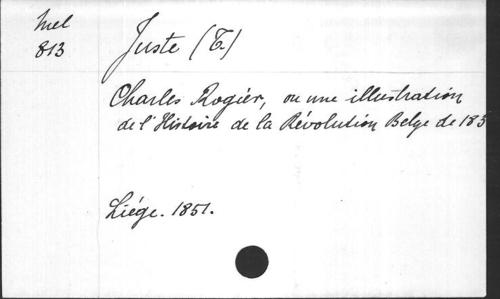 Mel
813
Juste (T.)
Charles Rogier, ou une illustration
de l'Histoire de la Révolution Belge de 183
Liége. 1851.